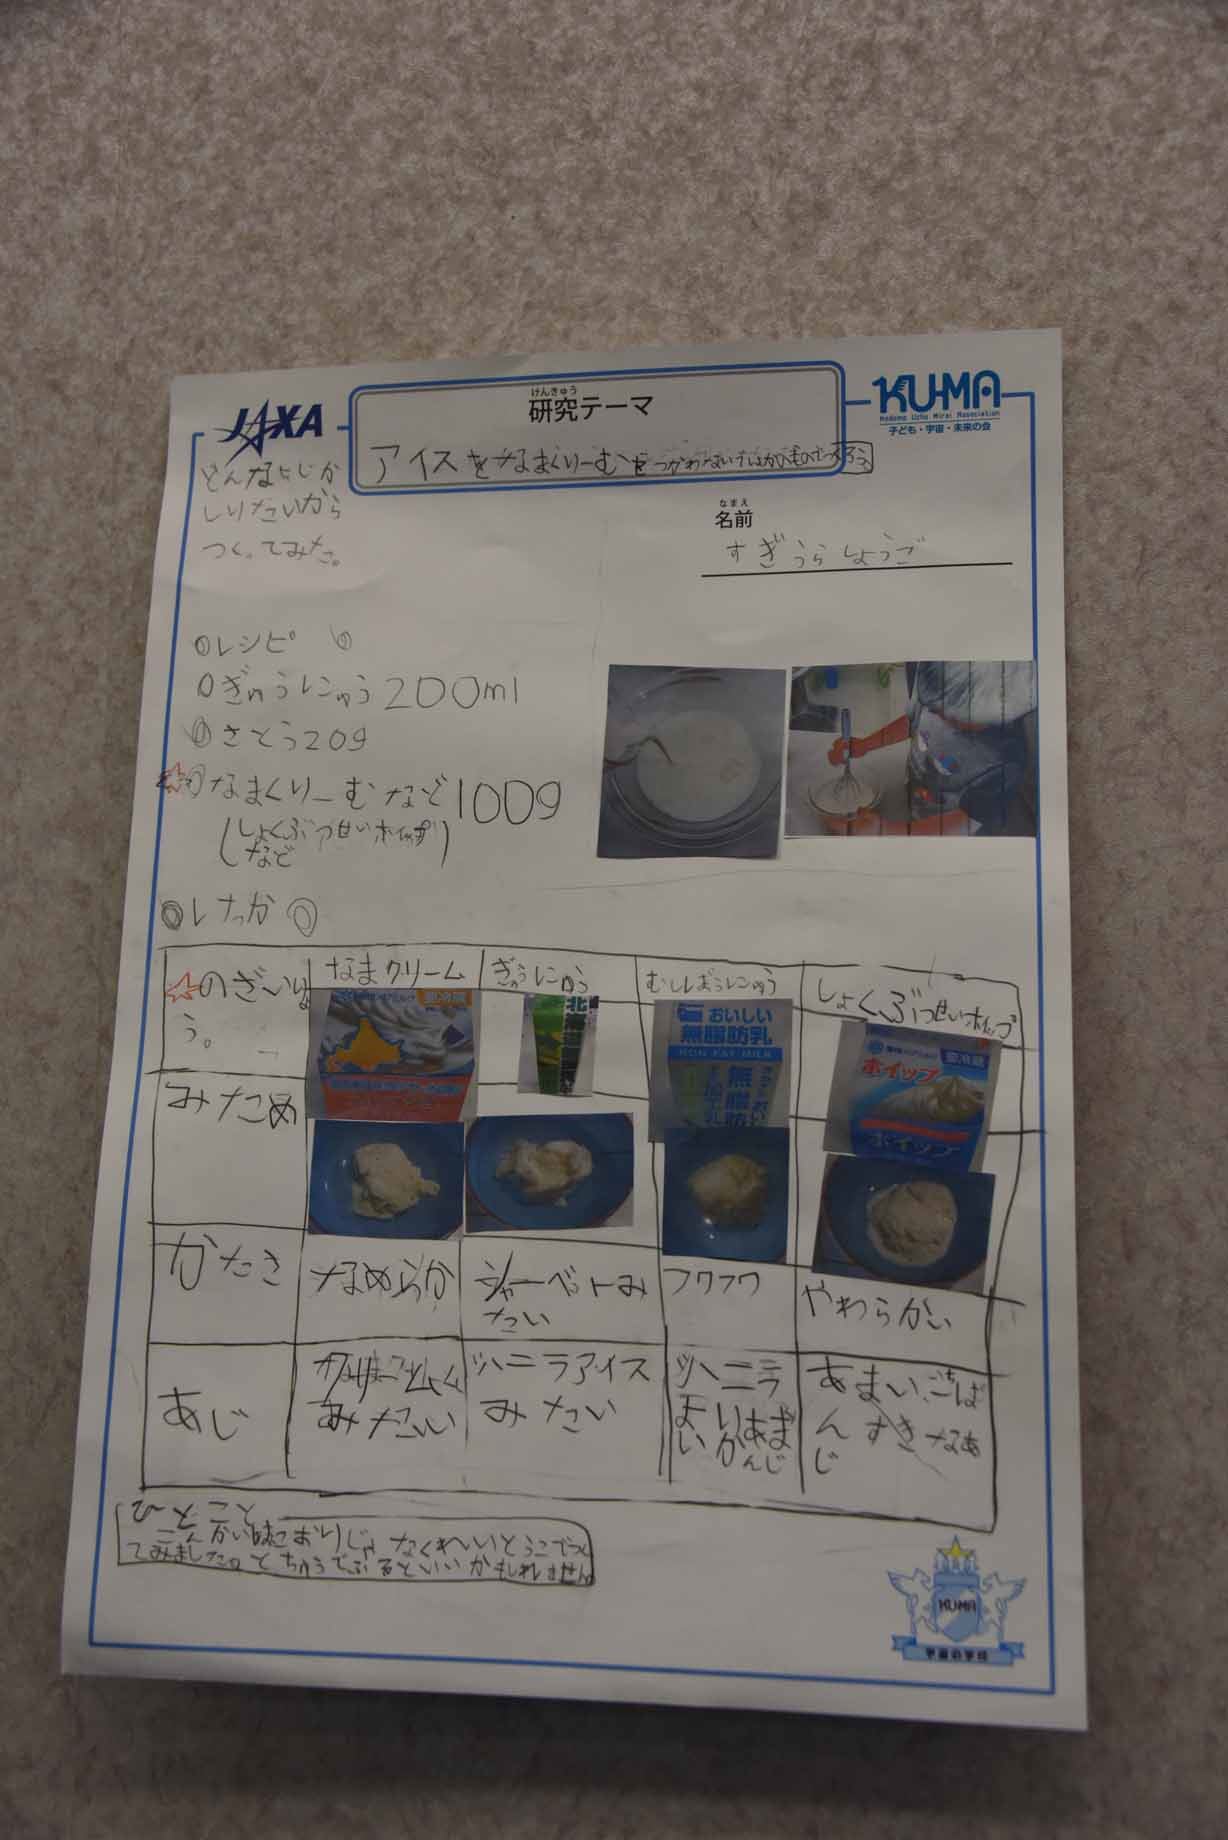 JAXA
けんきゅう
研究テーマ
KU-MA
Kodomo Uchu Mirai Association
子ども・宇宙・未来の会
アイスをなまくりーむをつかわない
どんなあじか
しりたいから
つくってみた。
なまえ
名前
すぎうらしょうご
レシピ
ぎゅうにゅう200ml
さとう20g
☆なまくりーむなど100g
(しょくぶつせいホイップ
など)
けっか
☆のぎいりょ
う。
なまクリーム
ぎゅうにゅう
むしぼうにゅう
しょくぶつせいホイップ
おいしい
無脂肪乳
NON-FAT MILK
ホイップ
ホイップ
みため
かたさ
なめらか
シャーベットみ
たい
フワフワ
やわらかい
あじ
みたい
バニラアイス
みたい
バニラ
あまい
すきなあ
じ
ひとこと
こんかいはこおりじゃなくれいとうこでつくっ
てみました。とちゅうでふるといいかもしれません。
KUMA
宇宙の学校